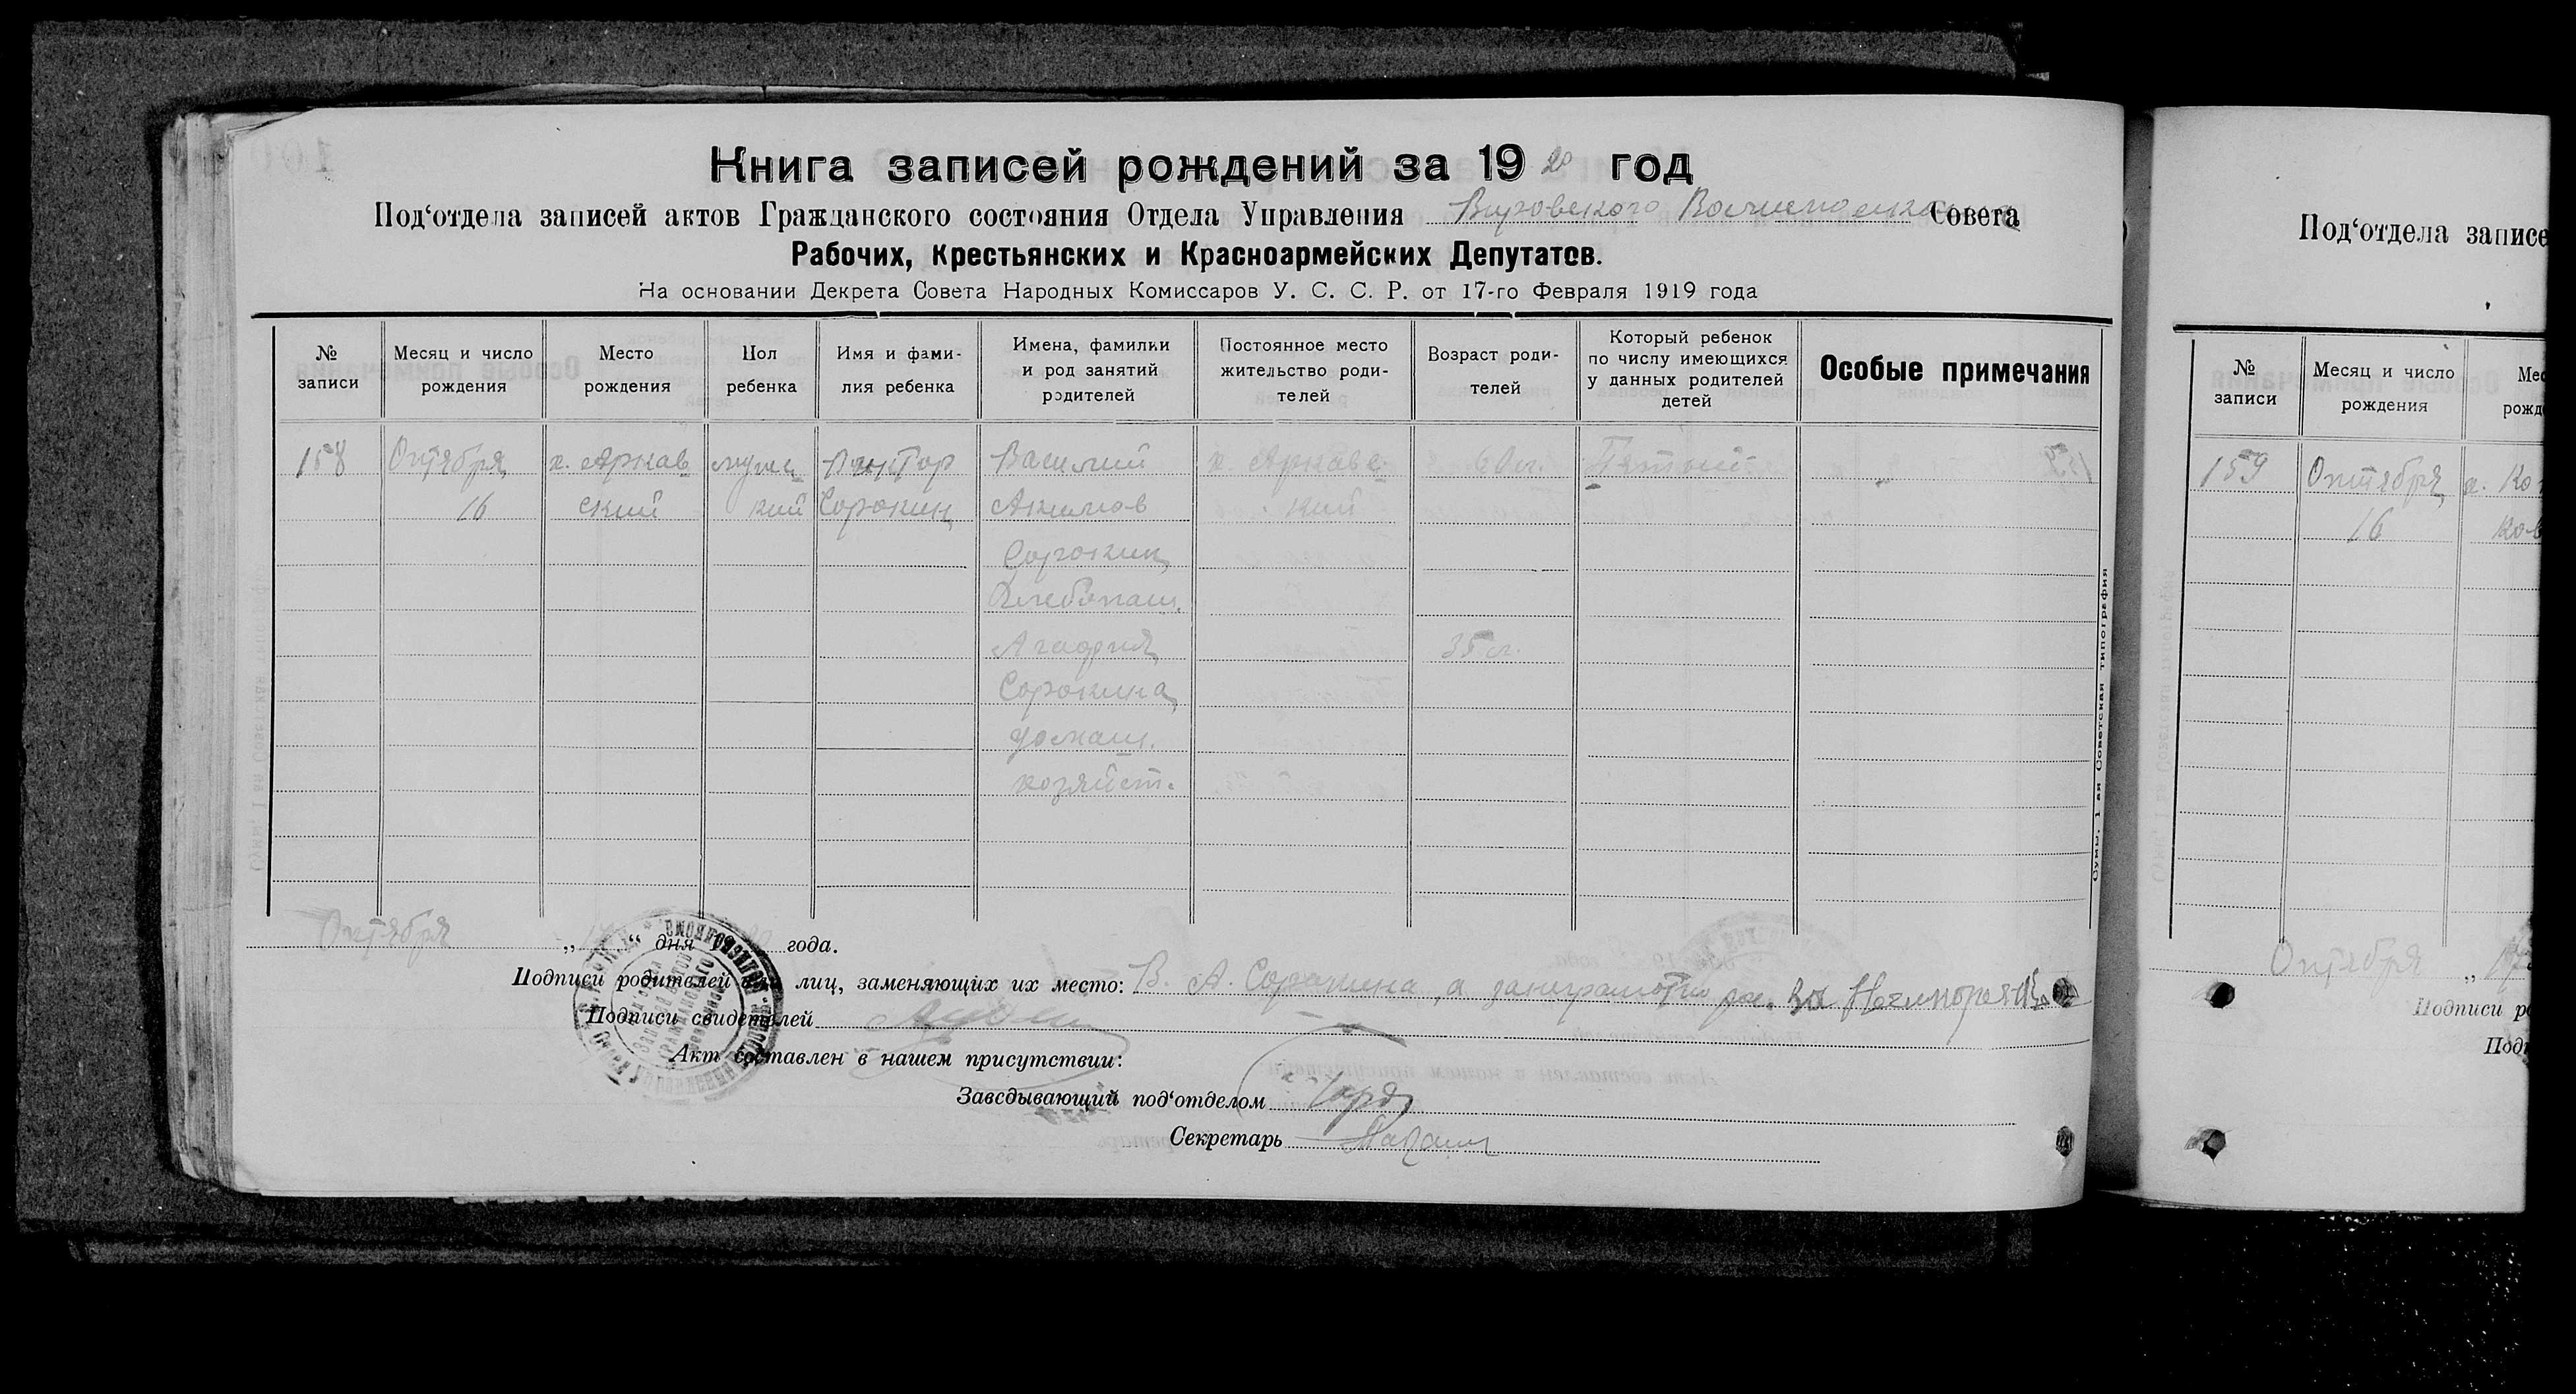 Книга записей рождений за 1920 год
Под‘отдела записей актов Гражданского состояния Отдела Управления Вировского Волисполкома Совета
Рабочих, Крестьянских и Красноармейских Депутатов.
На основании Декрета Совета Народных Комиссаров У. С. С. Р. от 17-го Февраля 1919 года
№ записи
Месяц и число рождения
Место рождения
Пол ребенка
Имя и фами-
лия ребенка
Имена, фамилки
и род занятий
родителей
Постоянное место
жительство роди-
телей
Возраст роди-
телей
Который ребенок
по числу имеющихся
у данных родителей
детей
Особые примечания
158 Октября х. Аркав мужс Виктор Василий х. Аркавс 60 л. Пятый
16 ский кий Сорокин Акимов кий
Сорокин
Хлебопаш.
Агафия 35 л.
Сорокина
домаш.
хозяйст.
Октября „ “ дня 19 года.
Подписи родителей или лиц, заменяющих их место: В. А. Сорокина, а за неграмотн
Подписи свидетелей
Акт составлен в нашем присутствии:
Заведывающий под‘отделом
Секретарь
Сумы, 1-ая Советская типография
Под‘отдела записе
№ записи
Месяц и число рождения
Мес
рожд
159 Октября х.
16
Октября
Подписи р
Подп